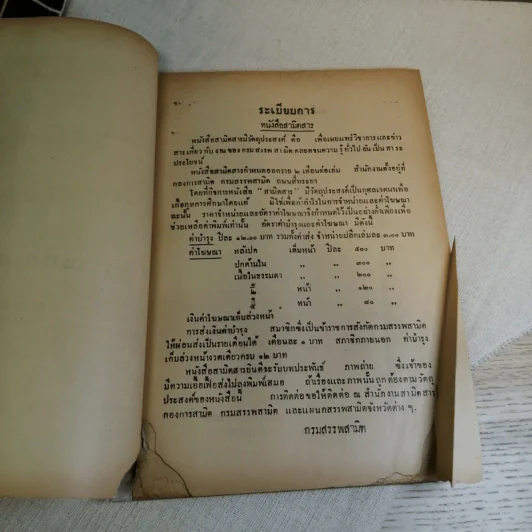 ระเบียบการ
หนังสือสามิตสาร
หนังสือสามิตสารมีวัตถุประสงค์ คือ เพื่อเผยแพร์วิชาการและข่าว
สารเกี่ยวกับงานของกรมสรรพสามิต ตลอดจนความรู้ทั่วไปอันเป็นสาระ
ประโยชน์
หนังสือสามิตสารกำหนดออกราย ๒ เดือนต่อเล่ม สำนักงานตั้งอยู่ที่
กองการสามิต กรมสรรพสามิต ถนนสี่พระยา
โดยที่กิจการหนังสือ “สามิตสาร” มีวัตถุประสงค์เป็นกุศลเจตนาเพื่อ
เกื้อกูลการศึกษาโดยแท้ มิใช่เพื่อกำไรในการจำหน่ายและค่าโฆษณา
ฉะนั้น ราคาจำหน่ายและอัตราค่าโฆษณาจึงกำหนดไว้เป็นอย่างต่ำเพียงเพื่อ
ช่วยเหลือค่าพิมพ์เท่านั้น อัตราค่าบำรุงและค่าโฆษณา มีดังนี้
ค่าบำรุง ปีละ ๑๒.๐๐ บาท รวมทั้งค่าส่ง จำหน่ายปลีกเล่มละ ๓.๐๐ บาท
ค่าโฆษณา หลังปก เต็มหน้า ปีละ ๕๐๐ บาท
ปกด้านใน ,, ,, ๓๐๐ ,,
เนื้อในธรรมดา ,, ,, ๒๐๐ ,,
,, หน้า ,, ๑๒๐ ,,
,, หน้า ,, ๘๐ ,,
เงินค่าโฆษณาเก็บล่วงหน้า
การส่งเงินค่าบำรุง สมาชิกซึ่งเป็นข้าราชการสังกัดกรมสรรพสามิต
ให้ผ่อนส่งเป็นรายเดือนได้ เดือนละ ๑ บาท สมาชิกภายนอก ค่าบำรุง
เก็บล่วงหน้างวดเดียวครบ ๑๒ บาท
หนังสือสามิตสารยินดีจะรับบทประพันธ์ ภาพถ่าย ซึ่งเจ้าของ
มีความเอื้อเฟื้อส่งไปลงพิมพ์เสมอ ถ้าเรื่องและภาพนั้นถูกต้องตามวัตถุ
ประสงค์ของหนังสือนี้ การติดต่อขอให้ติดต่อ ณ สำนักงานสามิตสาร
กองการสามิต กรมสรรพสามิต และแผนกสรรพสามิตจังหวัดต่าง ๆ.
กรมสรรพสามิต